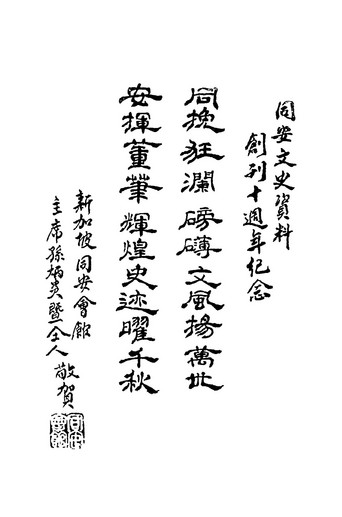 同安文史資料
創刊十週年紀念
同挽狂瀾磅礴文風揚萬世
安揮董筆輝煌史迹曜千秋
新加坡同安會館
主席孫炳炎暨仝人
敬賀